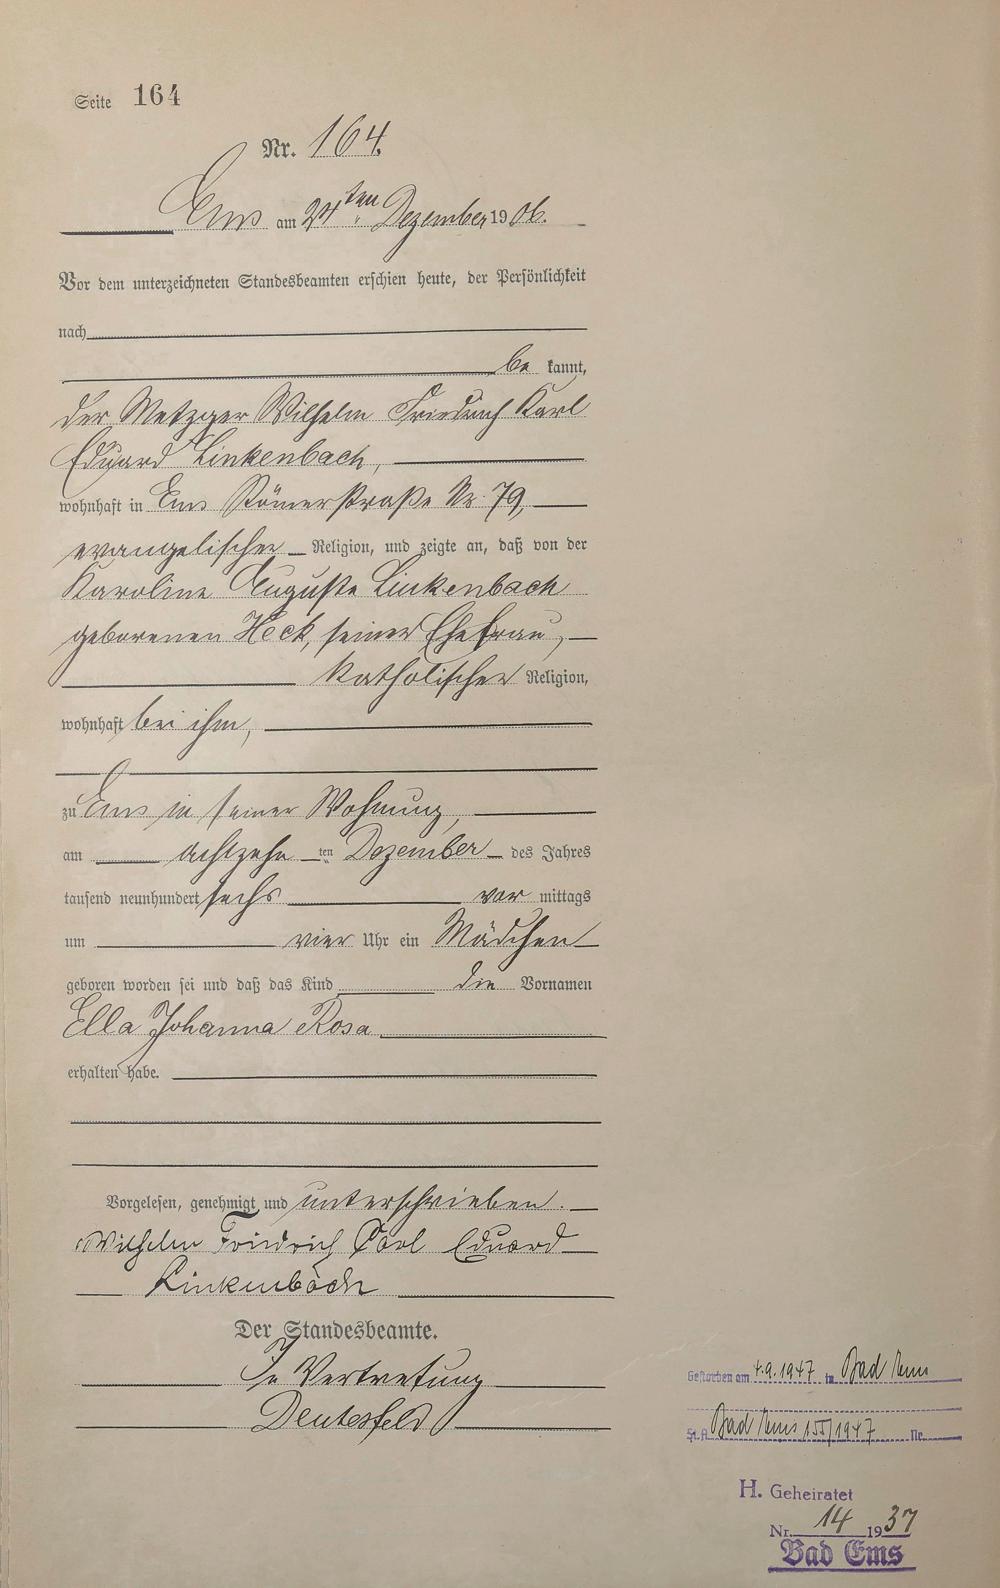 Seite 164
Nr. 164.
Ems am 24ten Dezember 1906.
Vor dem unterzeichneten Standesbeamten erschien heute, der Persönlichkeit
nach
be kannt,
der Metzger Wilhelm Friedrich Karl
Eduard Linkenbach,
wohnhaft in Ems Römerstraße Nr. 79,
evangelischer Religion, und zeigte an, daß von der
Karoline Auguste Linkenbach
geborenen Heck, seiner Ehefrau,
katholischer Religion,
wohnhaft bei ihm,
zu Ems in seiner Wohnung,
am achtzehn ten Dezember des Jahres
tausend neunhundert sechs vor mittags
um vier Uhr ein Mädchen
geboren worden sei und daß das Kind die Vornamen
Ella Johanna Rosa
erhalten habe.
Vorgelesen, genehmigt und unterschrieben.
Wilhelm Friedrich Carl Eduard
Linkenbach
Der Standesbeamte.
In Vertretung
Deutesfeld
Gestorben am 4.9.1947 in Bad Ems
St.A. Bad Ems 155/1947 Nr.
H. Geheiratet
Nr. 14 1937
Bad Ems